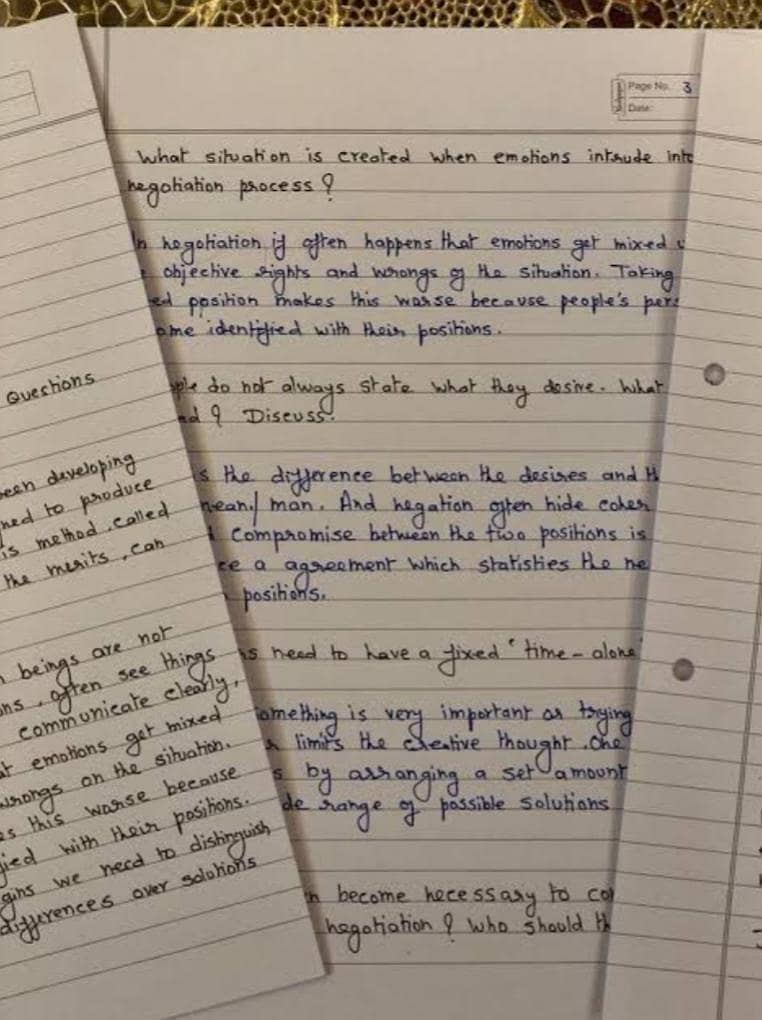 Page No. 3
Date:
What situation is created when emotions intrude into
negotiation process ?
In negotiation if often happens that emotions get mixed
objective rights and wrongs of the situation. Taking
position makes this worse because people's
identified with their positions.
do not always state what they desire. What
? Discuss.
the difference between the desires and
man. And negation often hide
compromise between the two positions is
a agreement which statisties the
positions.
need to have a fixed "time - alone
something is very important as trying
limits the creative thought. One
by arranging a set amount
range of possible solutions
become necessary to
negotiation ? Who should
Questions
developing
to produce
method, called
the merits, can
beings are not
often see things
communicate clearly,
emotions get mixed
wrongs on the situation.
this worse because
with their positions.
we need to distinguish
differences over solutions